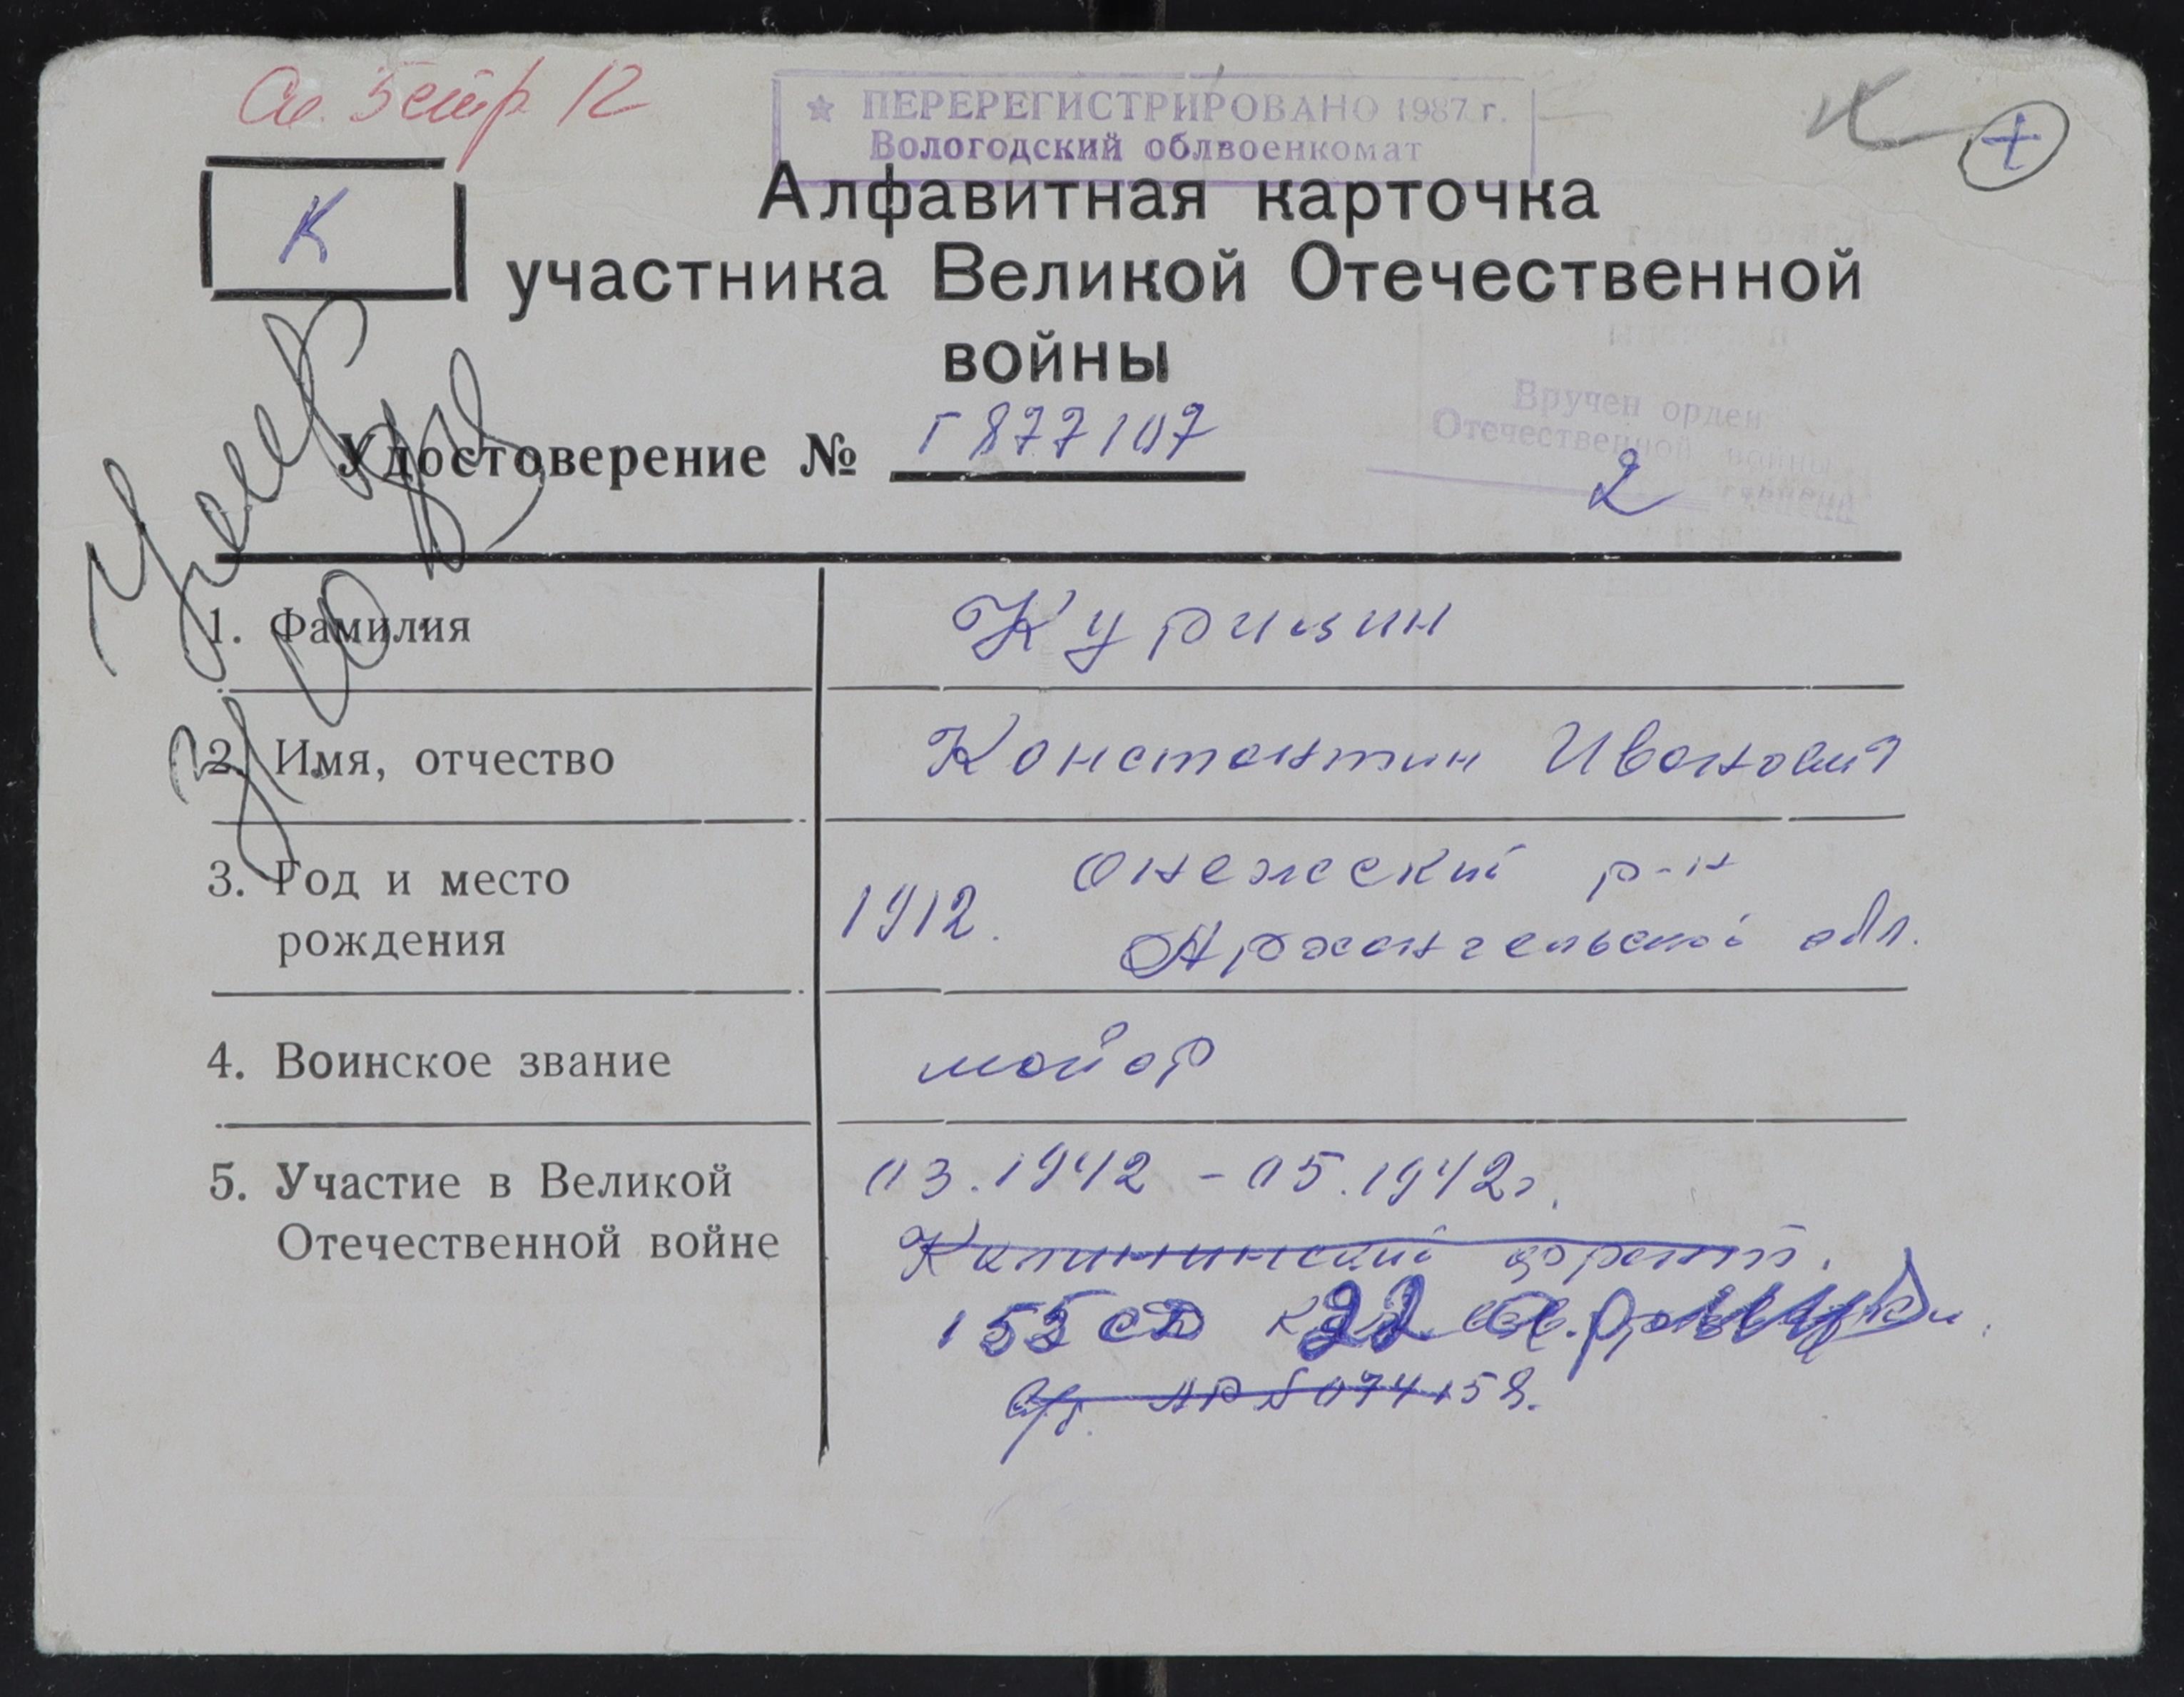 Сп. 5 стр 12
★ ПЕРЕРЕГИСТРИРОВАНО 1987 г.
Вологодский облвоенкомат
К +
К
Алфавитная карточка
участника Великой Отечественной
войны
Вручен орден
Отечественной войны
2 степени
Удостоверение № Г 877107
1. Фамилия Курицин
2. Имя, отчество Константин Иванович
3. Год и место 1912. Онежский р-н
рождения Архангельской обл.
4. Воинское звание майор
5. Участие в Великой 03.1942 - 05.1942г.
Отечественной войне Калининский фронт.
155 СД 22
074158.